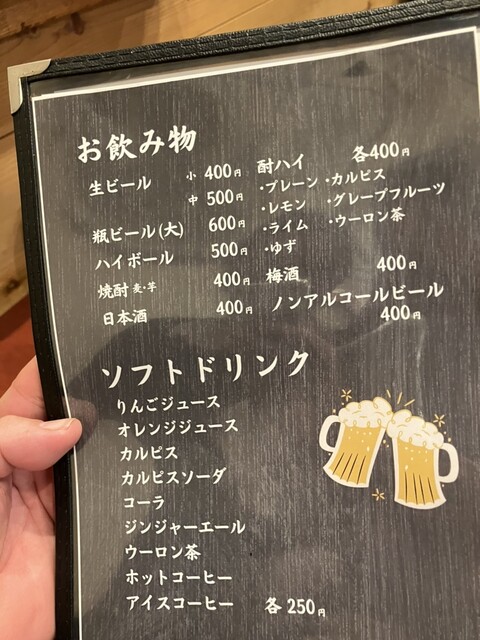 お飲み物
生ビール 小 400円
中 500円
瓶ビール(大) 600円
ハイボール 500円
焼酎 麦・芋 400円
日本酒 400円
酎ハイ 各400円
・プレーン ・カルピス
・レモン ・グレープフルーツ
・ライム ・ウーロン茶
・ゆず
梅酒 400円
ノンアルコールビール
400円
ソフトドリンク
りんごジュース
オレンジジュース
カルピス
カルピスソーダ
コーラ
ジンジャーエール
ウーロン茶
ホットコーヒー
アイスコーヒー 各250円